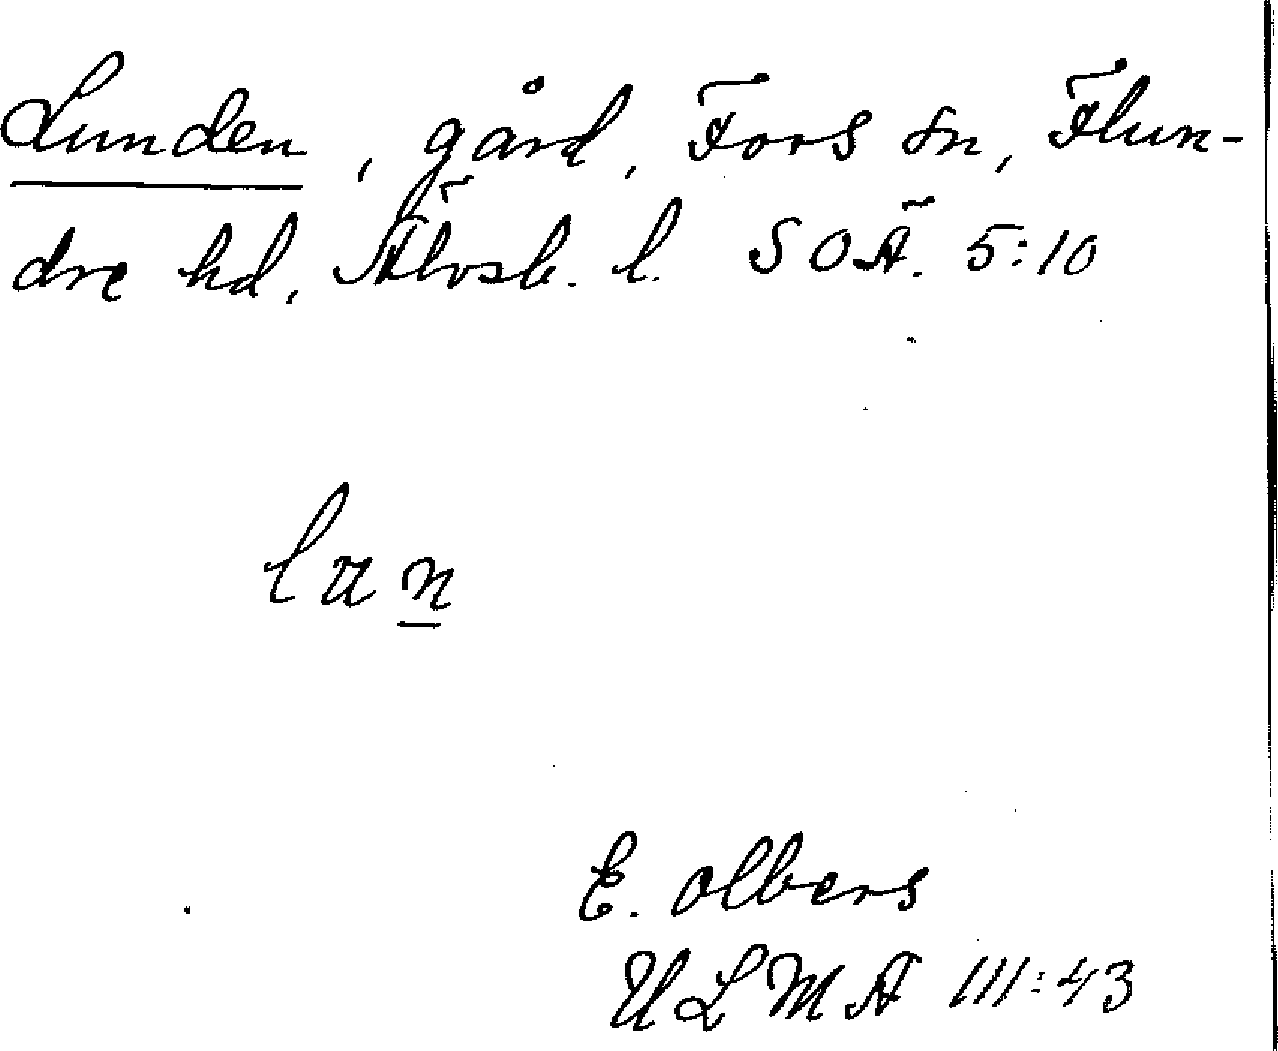 Lunden, gård, Fors sn, Flun-
dre hd, Älvsb. l. SOÄ. 5:10
lun
E. Olbers
ULMA 111:43